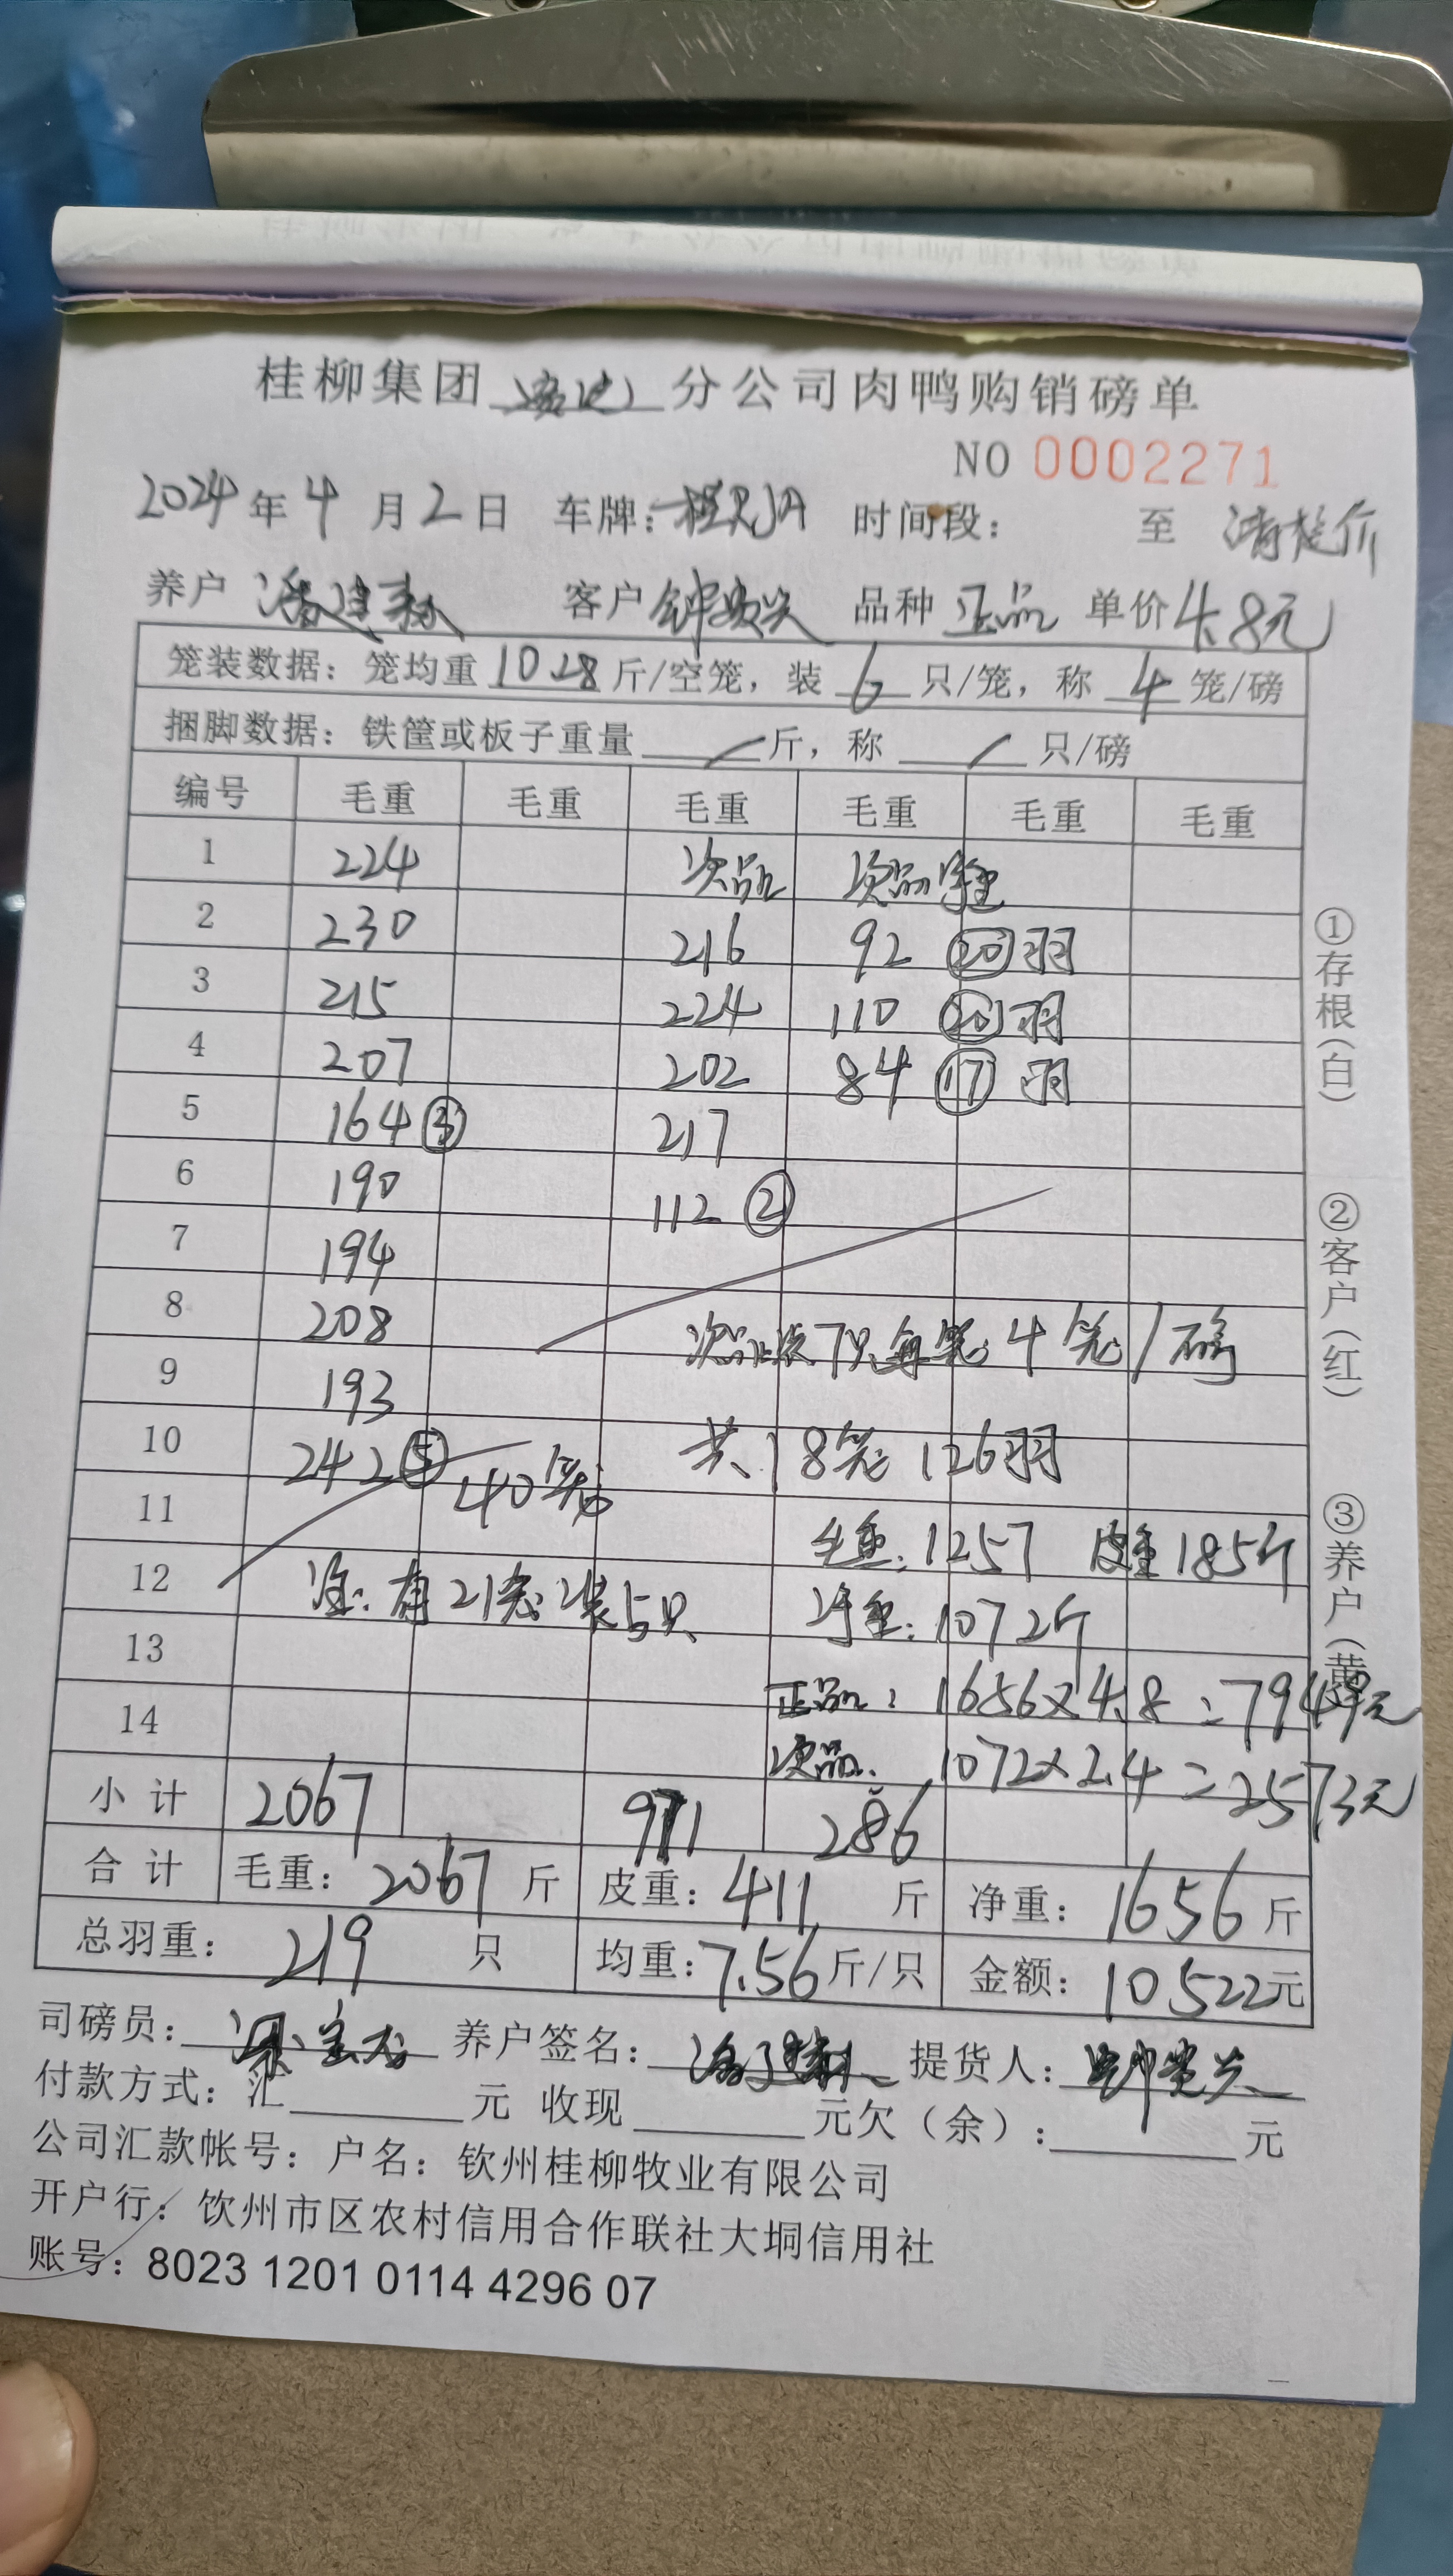 桂柳集团 分公司肉鸭购销磅单
NO 0002271
2024年4月2日 车牌: 时间段: 至 清栏价
养户 潘建 客户 钟贵兴 品种 正品 单价 4.8元
笼装数据: 笼均重 10.28 斤/空笼, 装 6 只/笼, 称 4 笼/磅
捆脚数据: 铁筐或板子重量 / 斤, 称 / 只/磅
编号 毛重 毛重 毛重 毛重 毛重 毛重
1 224 次品 次品单重
2 230 216 92 ⑳羽
3 215 224 110 ⑳羽
4 207 202 84 ⑰羽
5 164③ 217
6 190 112 ②
7 194
8 208 次品装7只每笼 4笼/磅
9 193
10 242⑤ 40笼 共18笼 126羽
11 毛重: 1257 皮重185斤
12 注: 有21笼装5只 净重: 1072斤
13
正品: 1656×4.8=7949元
14
次品: 1072×2.4=2573元
小计 2067 971 286
合计 毛重: 2067 斤 皮重: 411 斤 净重: 1656 斤
总羽重: 219 只 均重: 7.56 斤/只 金额: 10522元
司磅员: 养户签名: 潘建 提货人: 钟贵兴
付款方式: 汇 元 收现 元欠(余): 元
公司汇款帐号: 户名: 钦州桂柳牧业有限公司
开户行: 饮州市区农村信用合作联社大垌信用社
账号: 8023 1201 0114 4296 07
①存根(白)
②客户(红)
③养户(黄)